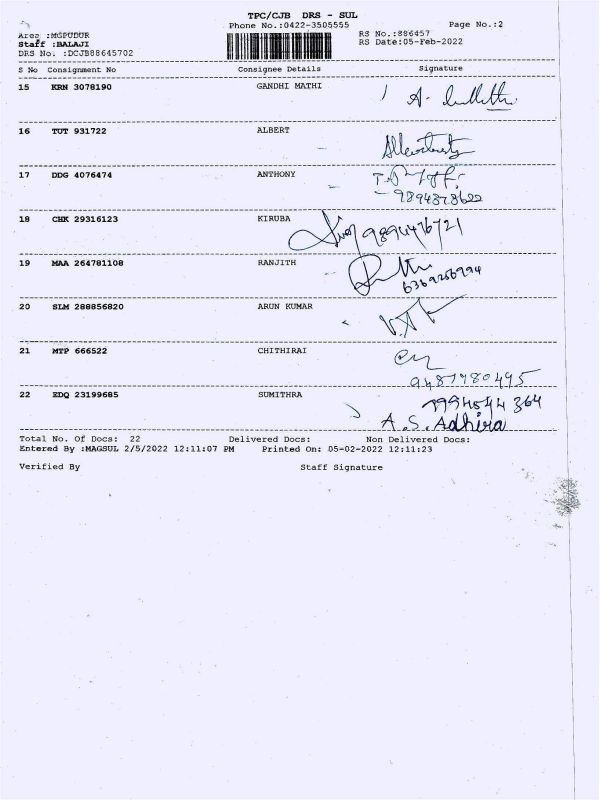 TPC/CJB DRS - SUL
Phone No.:0422-3505555 Page No.:2
Area :MSPUDUR RS No.:886457
Staff :BALAJI RS Date:05-Feb-2022
DRS No. :DCJB88645702
S No Consignment No Consignee Details Signature
15 KRN 3078190 GANDHI MATHI
16 TUT 931722 ALBERT
17 DDG 4076474 ANTHONY
9894878622
18 CHK 29316123 KIRUBA 9894476721
19 MAA 264781108 RANJITH
6369256994
20 SLM 288856820 ARUN KUMAR
21 MTP 666522 CHITHIRAI
9487980495
22 EDQ 23199685 SUMITHRA
A.S. Adhira
Total No. Of Docs: 22 Delivered Docs: Non Delivered Docs:
Entered By :MAGSUL 2/5/2022 12:11:07 PM Printed On: 05-02-2022 12:11:23
Verified By Staff Signature